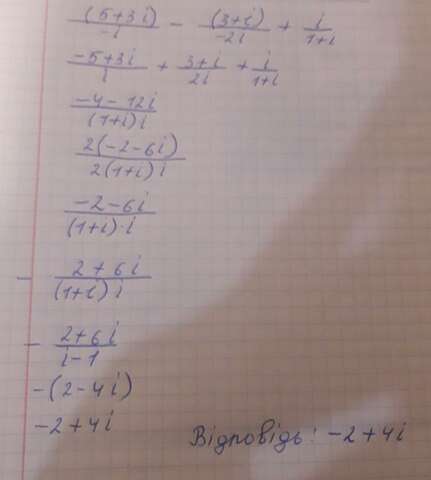 (5+3i)/-i - (3+i)/-2i + i/1+i
-5+3i/i + 3+i/2i + i/1+i
-4-12i/(1+i)i
2(-2-6i)/2(1+i)i
-2-6i/(1+i)·i
- 2+6i/(1+i)i
- 2+6i/i-1
-(2-4i)
-2+4i
Відповідь: -2+4i